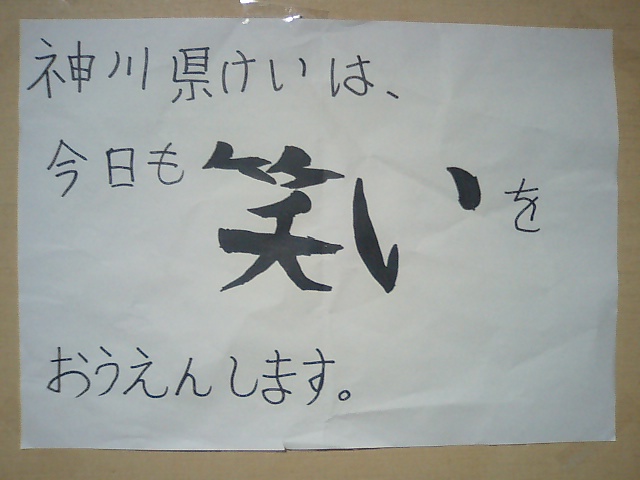 神川県けいは、
今日も笑いを
おうえんします。